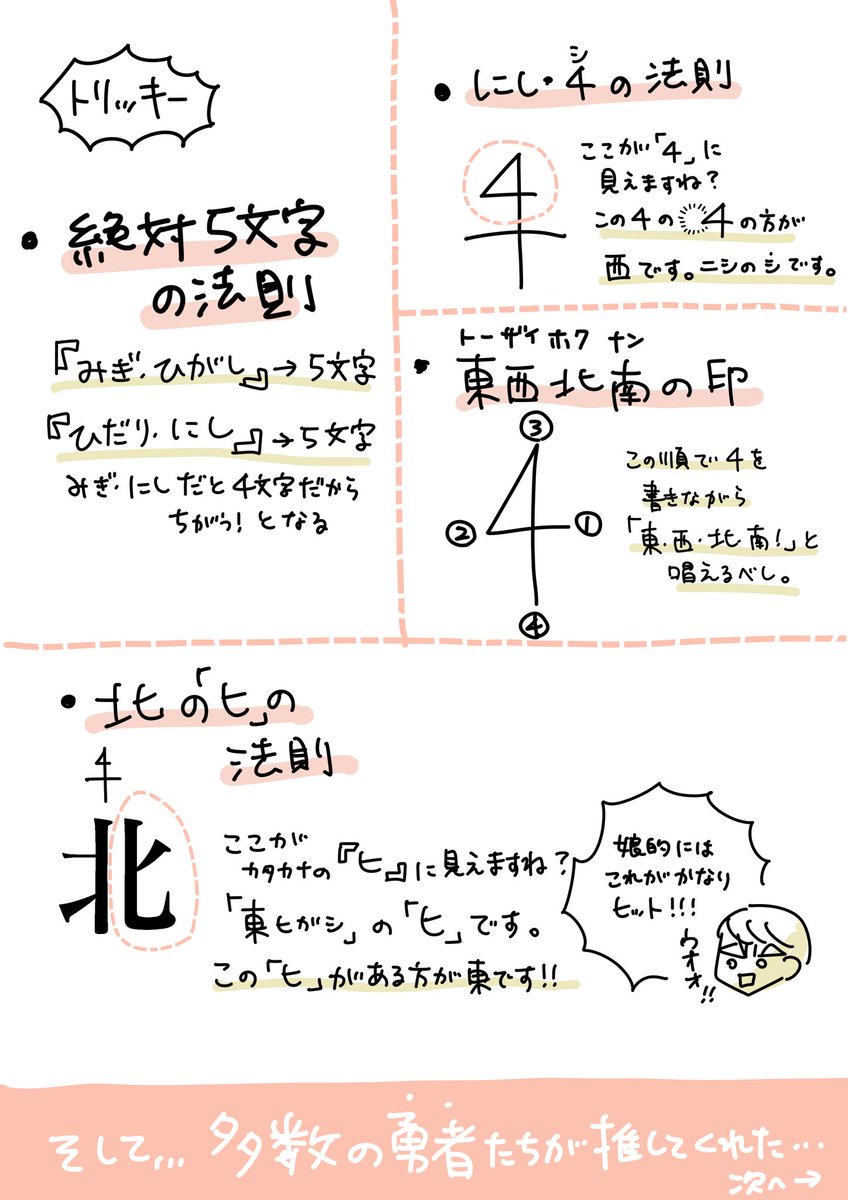 トリッキー
・絶対5文字
の法則
『みぎ・ひがし』→5文字
『ひだり・にし』→5文字
みぎ・にしだと4文字だから
ちがう!となる
シ
・にし・4の法則
ここが「4」に
見えますね?
この4の 4の方が
西です。ニシのシです。
トーザイ ホク ナン
・東西北南の印
③
②
①
④
この順で4を
書きながら
「東・西・北・南!」と
唱えるべし。
・北の「ヒ」の
法則
4
北
ここが
カタカナの『ヒ』に見えますね?
「東ヒガシ」の「ヒ」です。
この「ヒ」がある方が東です!!
娘的には
これがかなり
ヒット!!!
ウオオ!!
そして,,, 多数の勇者たちが推してくれた…
次へ→